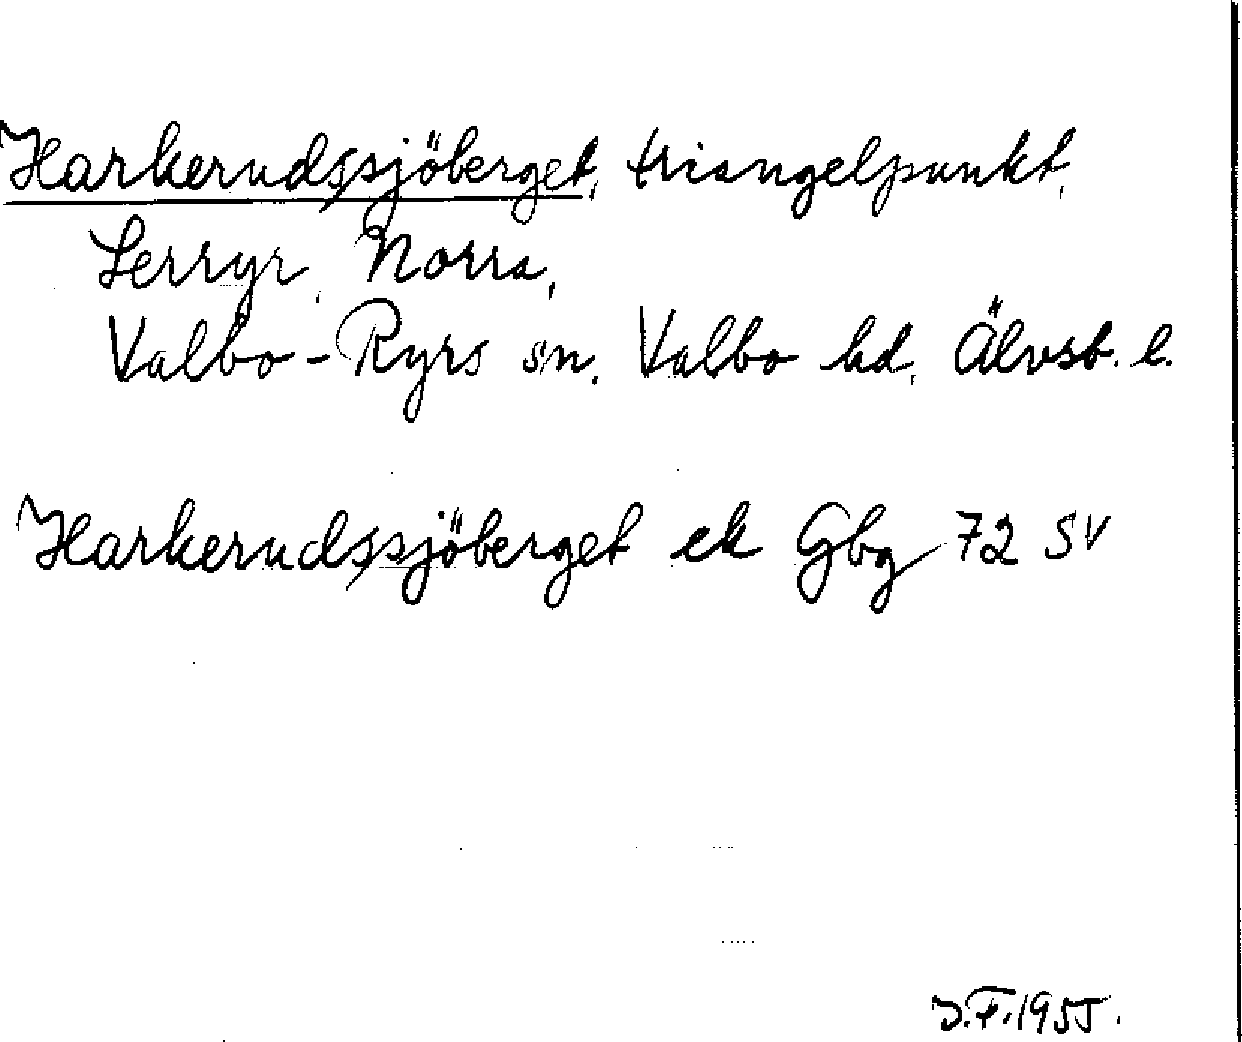 Harkerudssjöberget, triangelpunkt,
Lerryr, Norra,
Valbo-Ryrs sn, Valbo hd, Älvsb. l.
Harkerudssjöberget ek Gbg 72 SV
J.F. 1955.